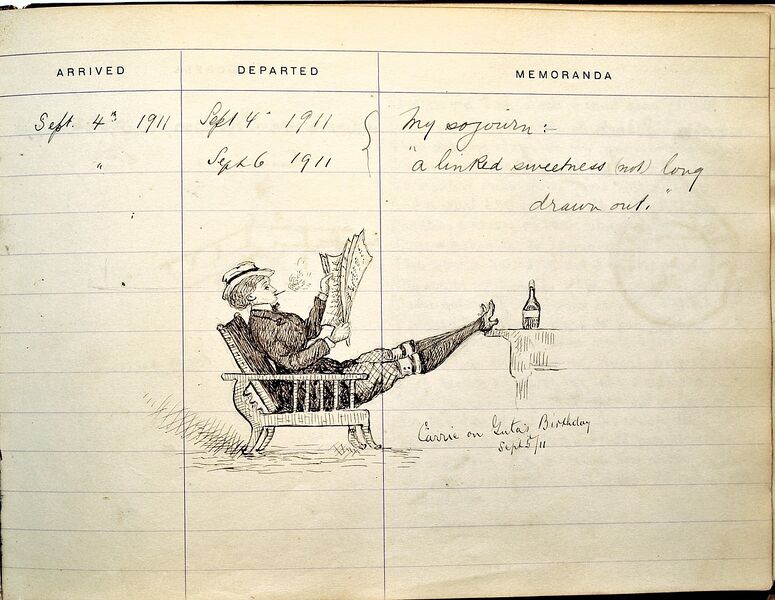 ARRIVED DEPARTED MEMORANDA
Sept. 4th 1911 Sept 4th 1911 My sojourn :-
" Sept 6 1911 "a linked sweetness (not) long
drawn out."
Carrie on Guta's Birthday
Sept 5/11